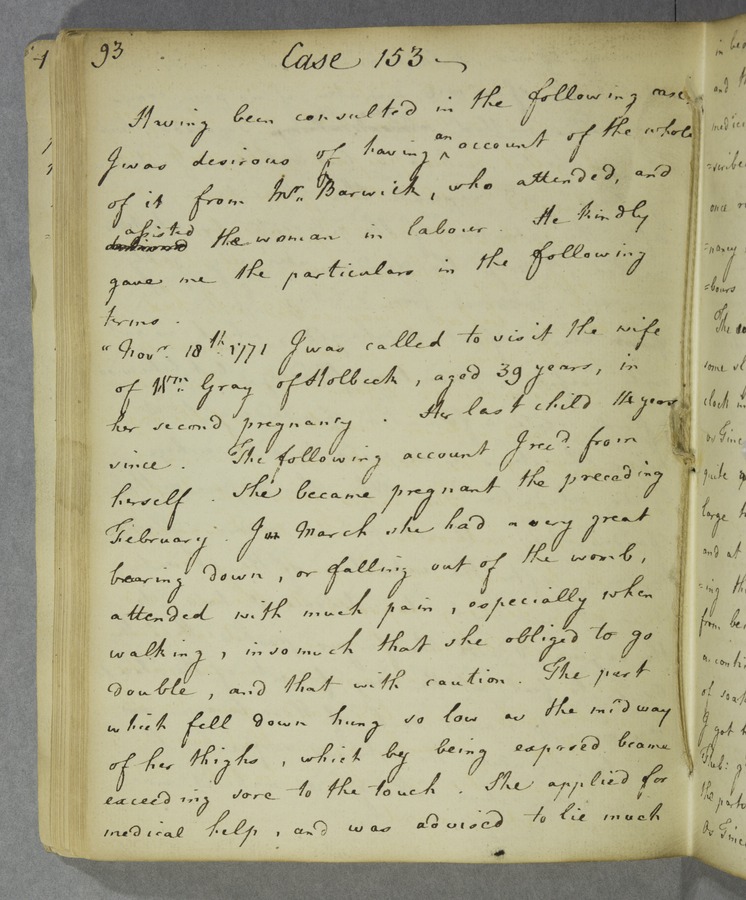 93
Case 153
Having been consulted in the following case.
I was desirous of having an account of the whole
of it from Mr. Barwick, who attended, and
assisted the woman in labour. He kindly
gave me the particulars in the following
terms.
"Novr. 18th. 1771 I was called to visit the wife
of Wm. Gray of Holbeck, aged 39 years, in
her second pregnancy. Her last child 14 years
since. The following account I rec'd. from
herself. She became pregnant the preceding
February. In March she had a very great
bearing down, or falling out of the womb,
attended with much pain, especially when
walking, insomuch that she obliged to go
double, and that with caution. The part
which fell down hung so low as the midway
of her thighs, which by being exposed became
exceeding sore to the touch. She applied for
medical help, and was advised to lie much